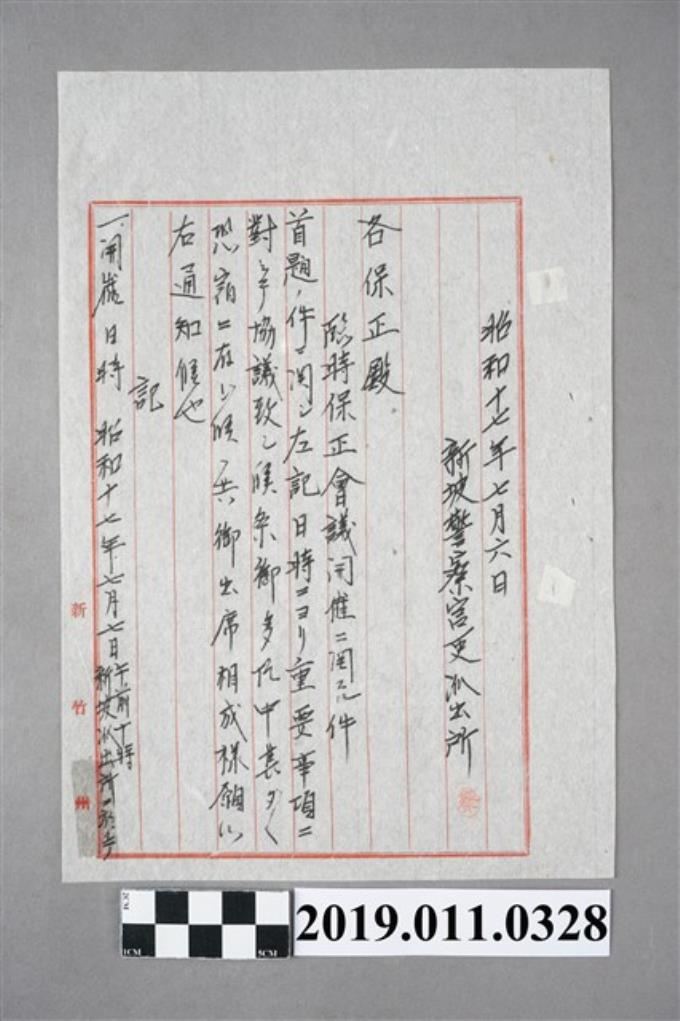 昭和十七年七月六日
新坡警察官吏派出所
各保正殿
臨時保正會議開催ニ関スル件
首題ノ件ニ関シ左記日時ニヨリ重要事項ニ
對シ協議致シ候条御多忙中甚ダ
恐縮ニ存シ候ヘ共御出席相成様願
右通知候也
記
一、開催日時 昭和十七年七月七日午前十時
新坡派出所ニ於テ
新竹州
2CM
1CM
5CM
2019.011.0328